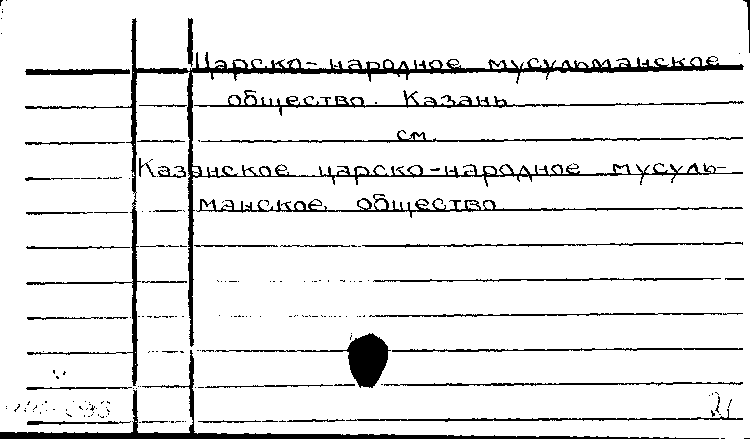 Царско-народное мусульманское
общество. Казань
см.
Казанское царско-народное мусуль-
манское общество